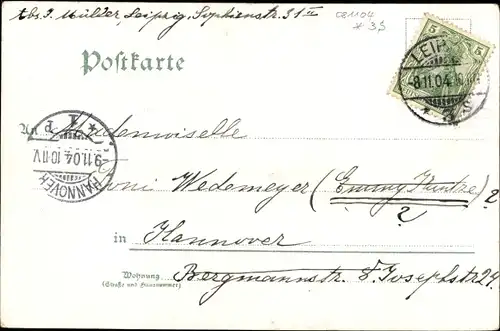 Abs. J. Müller, Leipzig, Sophienstr. 31 II
081104
* 3S
Postkarte
5
LEIP
8.11.04.10
* 3
An Mademoiselle
* 1 P
9.11.04.10-11V
HANNOVER
Toni Wedemeyer (Emmy Kuntze) ?
?
in Hannover
Wohnung
(Straße und Hausnummer)
Bergmannstr. 8. Josephstr 29